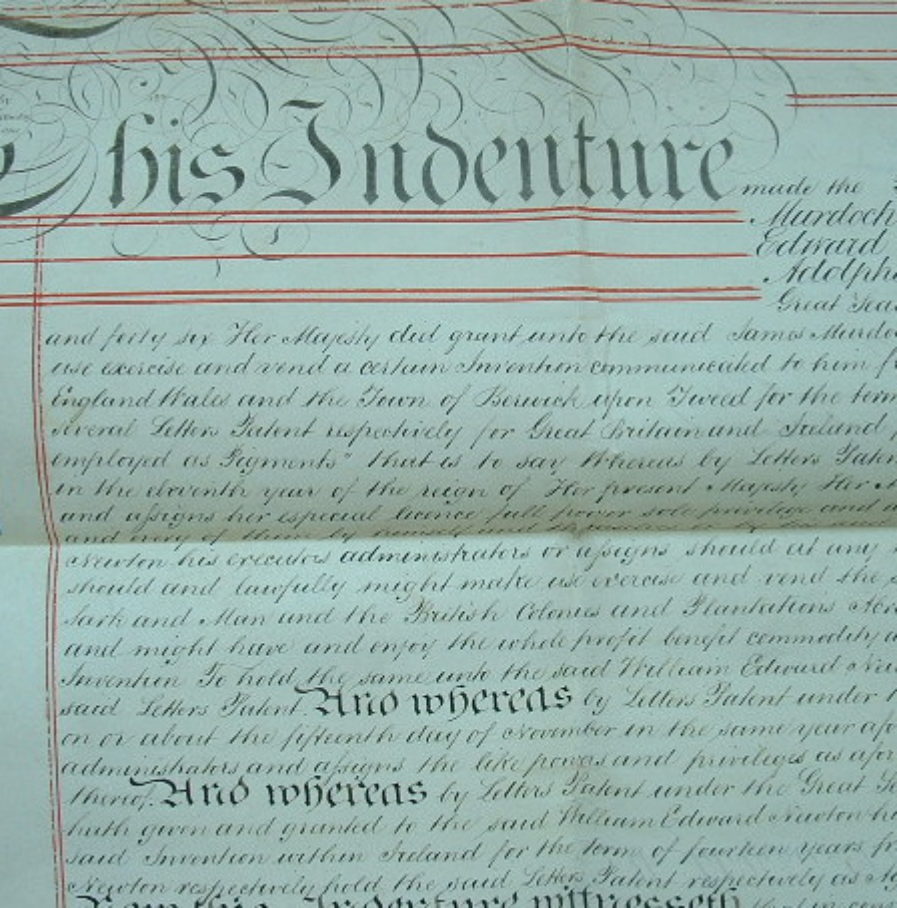 This Indenture made the
Murdoch
Edward
Adolph
Great Sea
and forty six Her Majesty did grant unto the said James Murdo
use exercise and vend a certain Invention communicated to him f
England Wales and the Town of Berwick upon Tweed for the term
several Letters Patent respectively for Great Britain and Ireland
employed as Pigments" that is to say Whereas by Letters Paten
in the eleventh year of the reign of Her present Majesty Her M
and assigns her especial licence full power sole privilege and a
and every of them by himself and
Newton his executors administrators or assigns should at any
should and lawfully might make use exercise and vend the s
Sark and Man and the British Colonies and Plantations Abro
and might have and enjoy the whole profit benefit commodity a
Invention To hold the same unto the said William Edward New
said Letters Patent And whereas by Letters Patent under t
on or about the fifteenth day of November in the same year afo
administrators and assigns the like powers and privileges as afor
thereof. And whereas by Letters Patent under the Great Se
hath given and granted to the said William Edward Newton hi
said Invention within Ireland for the term of fourteen years fr
Newton respectively hold the said Letters Patent respectively as
Now this Indenture witnesseth that in cons